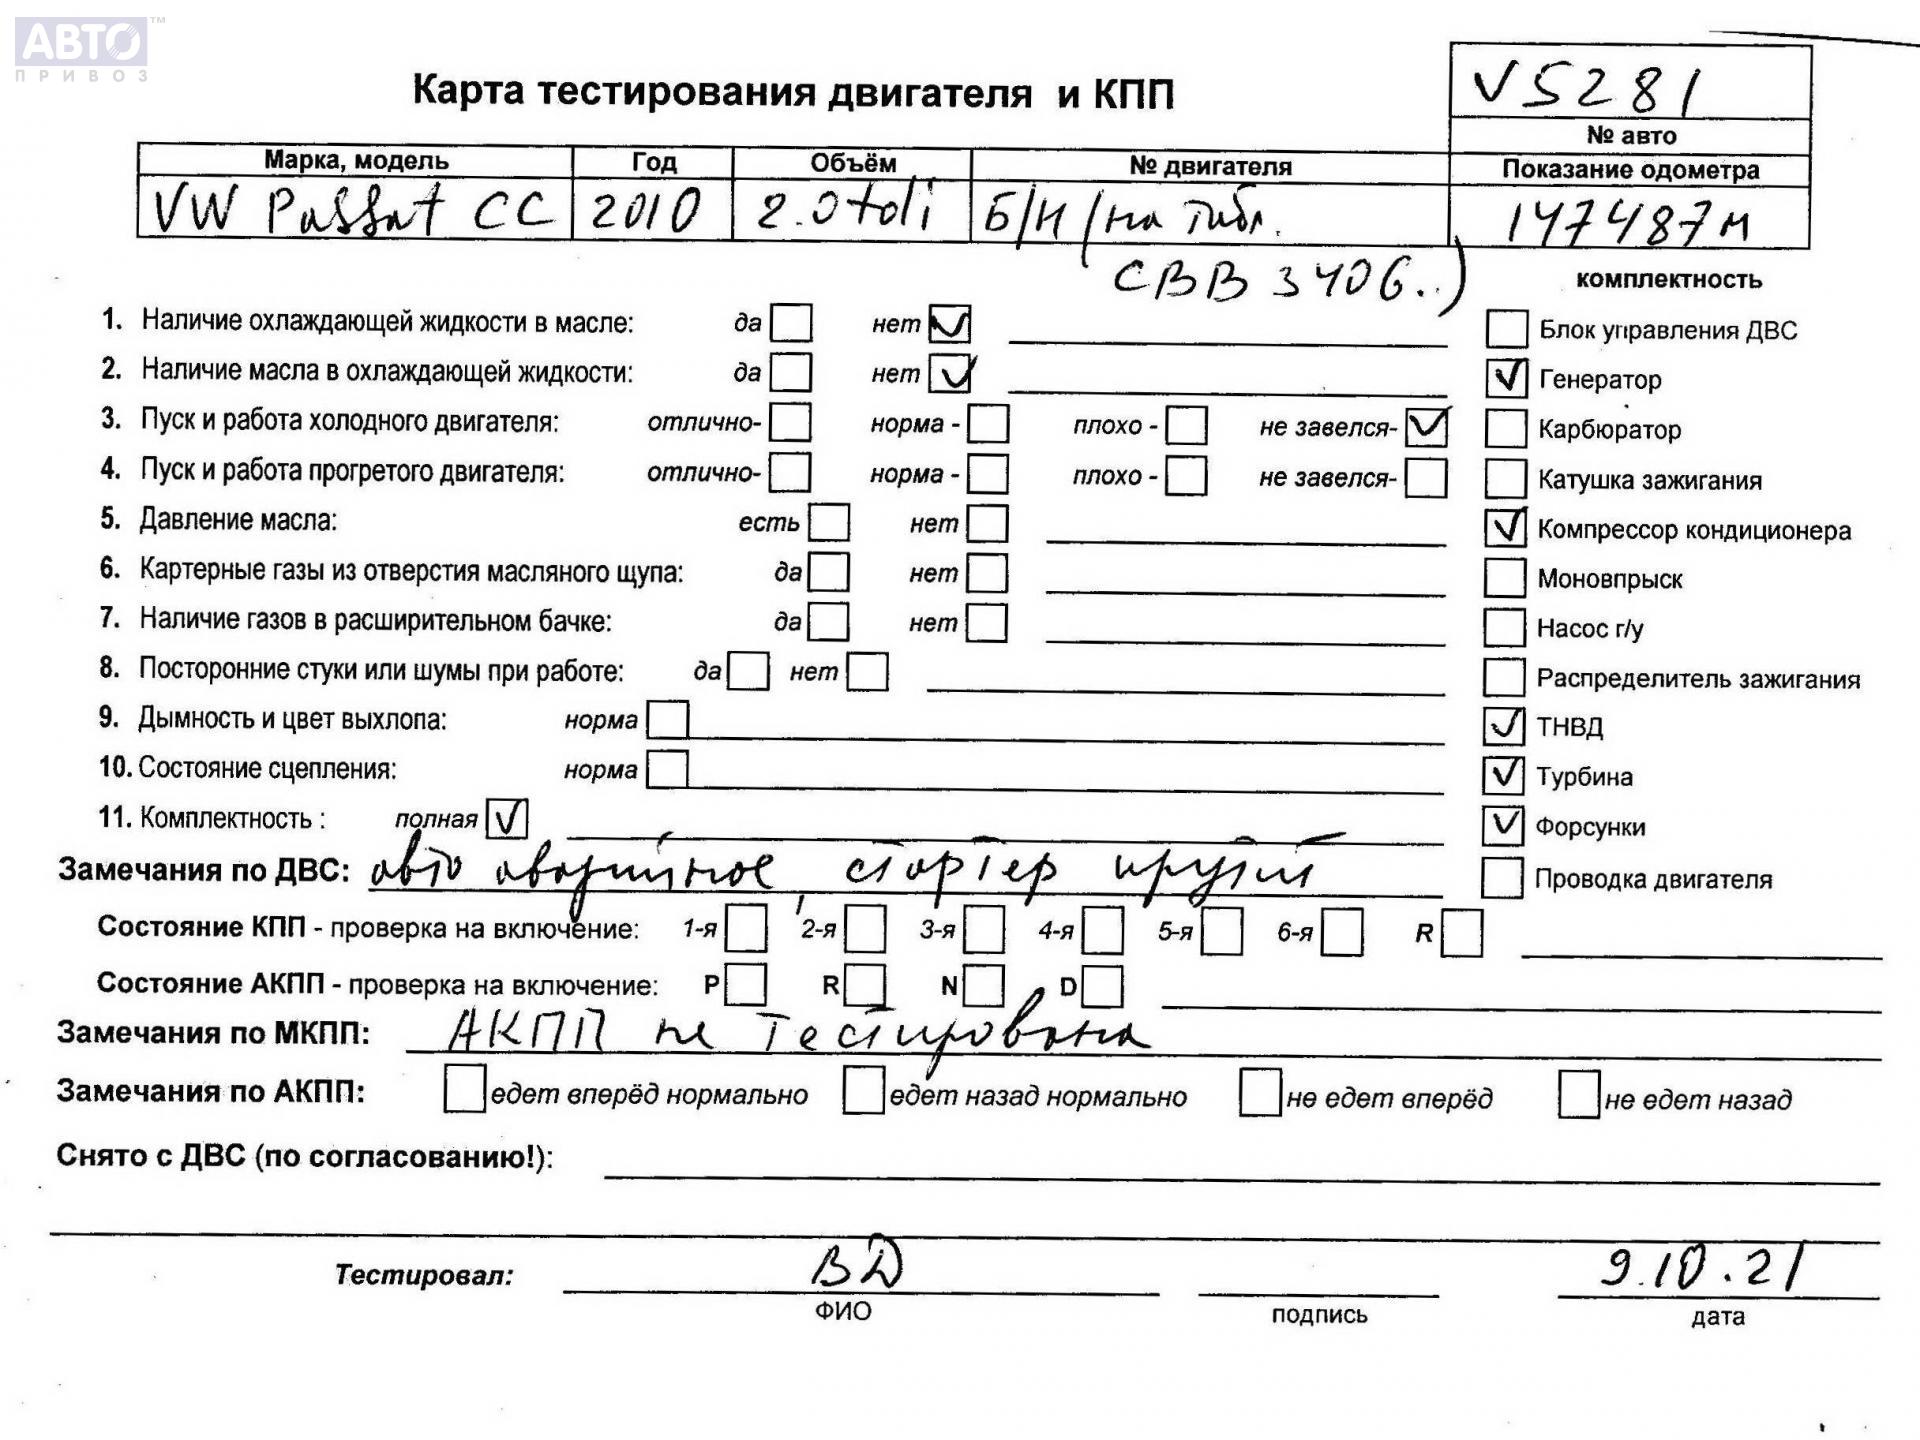 АВТО™
ПРИВОЗ
Карта тестирования двигателя и КПП
V5281
№ авто
Марка, модель Год Объём № двигателя Показание одометра
VW Passat CC 2010 2.0 tdi Б/Н (на табл. 147487м
CBB 3406..)
комплектность
1. Наличие охлаждающей жидкости в масле: да нет Блок управления ДВС
2. Наличие масла в охлаждающей жидкости: да нет Генератор
3. Пуск и работа холодного двигателя: отлично- норма - плохо - не завелся- Карбюратор
4. Пуск и работа прогретого двигателя: отлично- норма - плохо - не завелся- Катушка зажигания
5. Давление масла: есть нет Компрессор кондиционера
6. Картерные газы из отверстия масляного щупа: да нет Моновпрыск
7. Наличие газов в расширительном бачке: да нет Насос г/у
8. Посторонние стуки или шумы при работе: да нет Распределитель зажигания
9. Дымность и цвет выхлопа: норма ТНВД
10. Состояние сцепления: норма Турбина
11. Комплектность : полная Форсунки
Замечания по ДВС: авто аварийное, стартер крутит Проводка двигателя
Состояние КПП - проверка на включение: 1-я 2-я 3-я 4-я 5-я 6-я R
Состояние АКПП - проверка на включение: P R N D
Замечания по МКПП: АКПП не тестирована
Замечания по АКПП: едет вперёд нормально едет назад нормально не едет вперёд не едет назад
Снято с ДВС (по согласованию!):
Тестировал: ВД 9.10.21
ФИО подпись дата